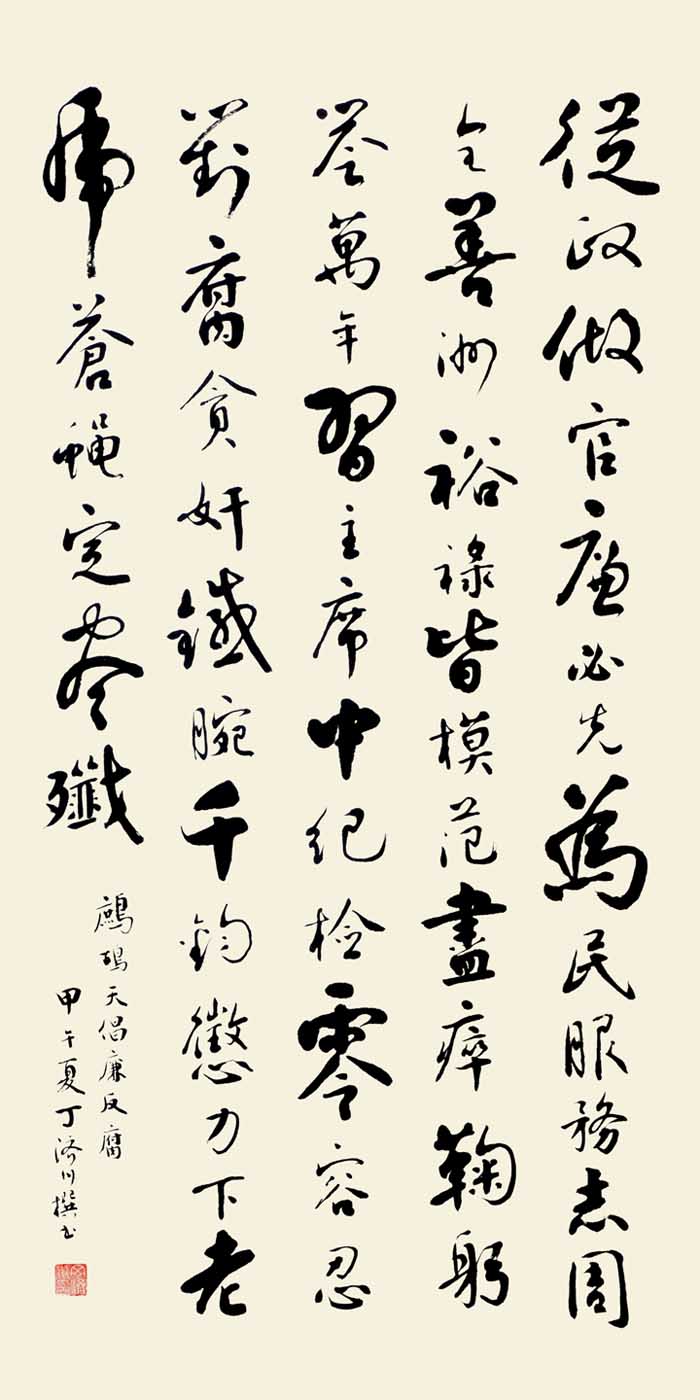 從政做官廉必先為民服務志周
全善洲裕禄皆模范盡瘁鞠躬
誉萬年習主席中纪检零容忍
對腐貪奸鐵腕千鈞懲力下老
虎蒼蝇定尽殲
鷓鴣天倡廉反腐
甲午夏丁济川撰书